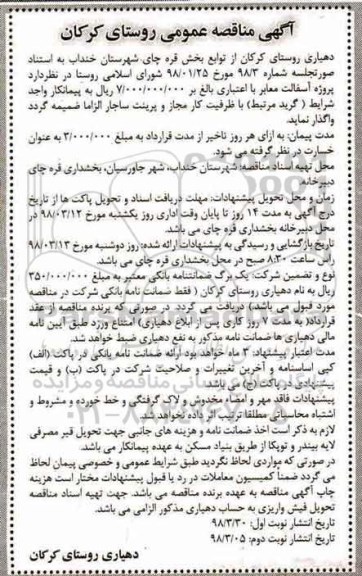 آگهی مناقصه عمومی روستای کرکان
دهیاری روستای کرکان از توابع بخش قره چای شهرستان خنداب به استناد
صورتجلسه شماره ۹۸/۳ مورخ ۹۸/۰۱/۲۵ شورای اسلامی روستا در نظردارد
پروژه آسفالت معابر با اعتباری بالغ بر ۷/۰۰۰/۰۰۰/۰۰۰ ریال به پیمانکار واجد
شرایط ( گرید مرتبط) با ظرفیت کار مجاز و پرینت ساجار الزاما ضمیمه گردد
واگذار نماید.
مدت پیمان: به ازای هر روز تاخیر از مدت قرارداد به مبلغ ۳/۰۰۰/۰۰۰ به عنوان
خسارت در نظر گرفته می شود.
محل تهیه اسناد مناقصه: شهرستان خنداب، شهر جاورسیان، بخشداری قره چای
دبیرخانه
زمان و محل تحویل پیشنهادات: مهلت دریافت اسناد و تحویل پاکت ها از تاریخ
درج آگهی به مدت ۱۴ روز تا پایان وقت اداری روز یکشنبه مورخ ۹۸/۰۳/۱۲ در
محل دبیرخانه بخشداری قره چای می باشد.
تاریخ بازگشایی و رسیدگی به پیشنهادات ارائه شده: روز دوشنبه مورخ ۹۸/۰۳/۱۳
راس ساعت ۸:۳۰ صبح در محل بخشداری قره چای می باشد.
نوع و تضمین شرکت: یک برگ ضمانتنامه بانکی معتبر به مبلغ ۳۵۰/۰۰۰/۰۰۰
ریال به نام دهیاری روستای کرکان ( فقط ضمانت نامه بانکی شرکت در مناقصه
مورد قبول می باشد) دریافت می گردد در صورتی که برنده مناقصه از عقد
قرارداد( به مدت ۷ روز کاری پس از ابلاغ دهیاری) امتناع ورزد طبق آیین نامه
مالی دهیاری ها ضمانت نامه مذکور به نفع دهیاری ضبط خواهد شد.
مدت اعتبار پیشنهاد: ۳ ماه خواهد بود ارائه ضمانت نامه بانکی در پاکت (الف)
کپی اساسنامه و آخرین تغییرات و صلاحیت شرکت در پاکت (ب) و قیمت
پیشنهادی در پاکت (ج) می باشد.
پیشنهادات فاقد مهر و امضاء مخدوش و لاک گرفتگی و خط خورده و مشروط و
اشتباه محاسباتی مطلقا ترتیب اثر داده نخواهد شد.
لازم به ذکر است اخذ ضمانت نامه و هزینه های جانبی جهت تحویل قیر مصرفی
لایه بیندر و توپکا از طریق بنیاد مسکن به عهده پیمانکار می باشد.
در صورتی که مواردی لحاظ نگردید طبق شرایط عمومی و خصوصی پیمان لحاظ
می گردد ضمنأ کمیسیون معاملات در رد یا قبول پیشنهادات مختار است هزینه
چاپ آگهی مناقصه به عهده برنده مناقصه می باشد. جهت تهیه اسناد مناقصه
تحویل فیش واریزی به حساب دهیاری مذکور الزامی می باشد.
تاریخ انتشار نوبت اول: ۹۸/۳/۳۰
تاریخ انتشار نوبت دوم: ۹۸/۳/۰۵
دهیاری روستای کرکان